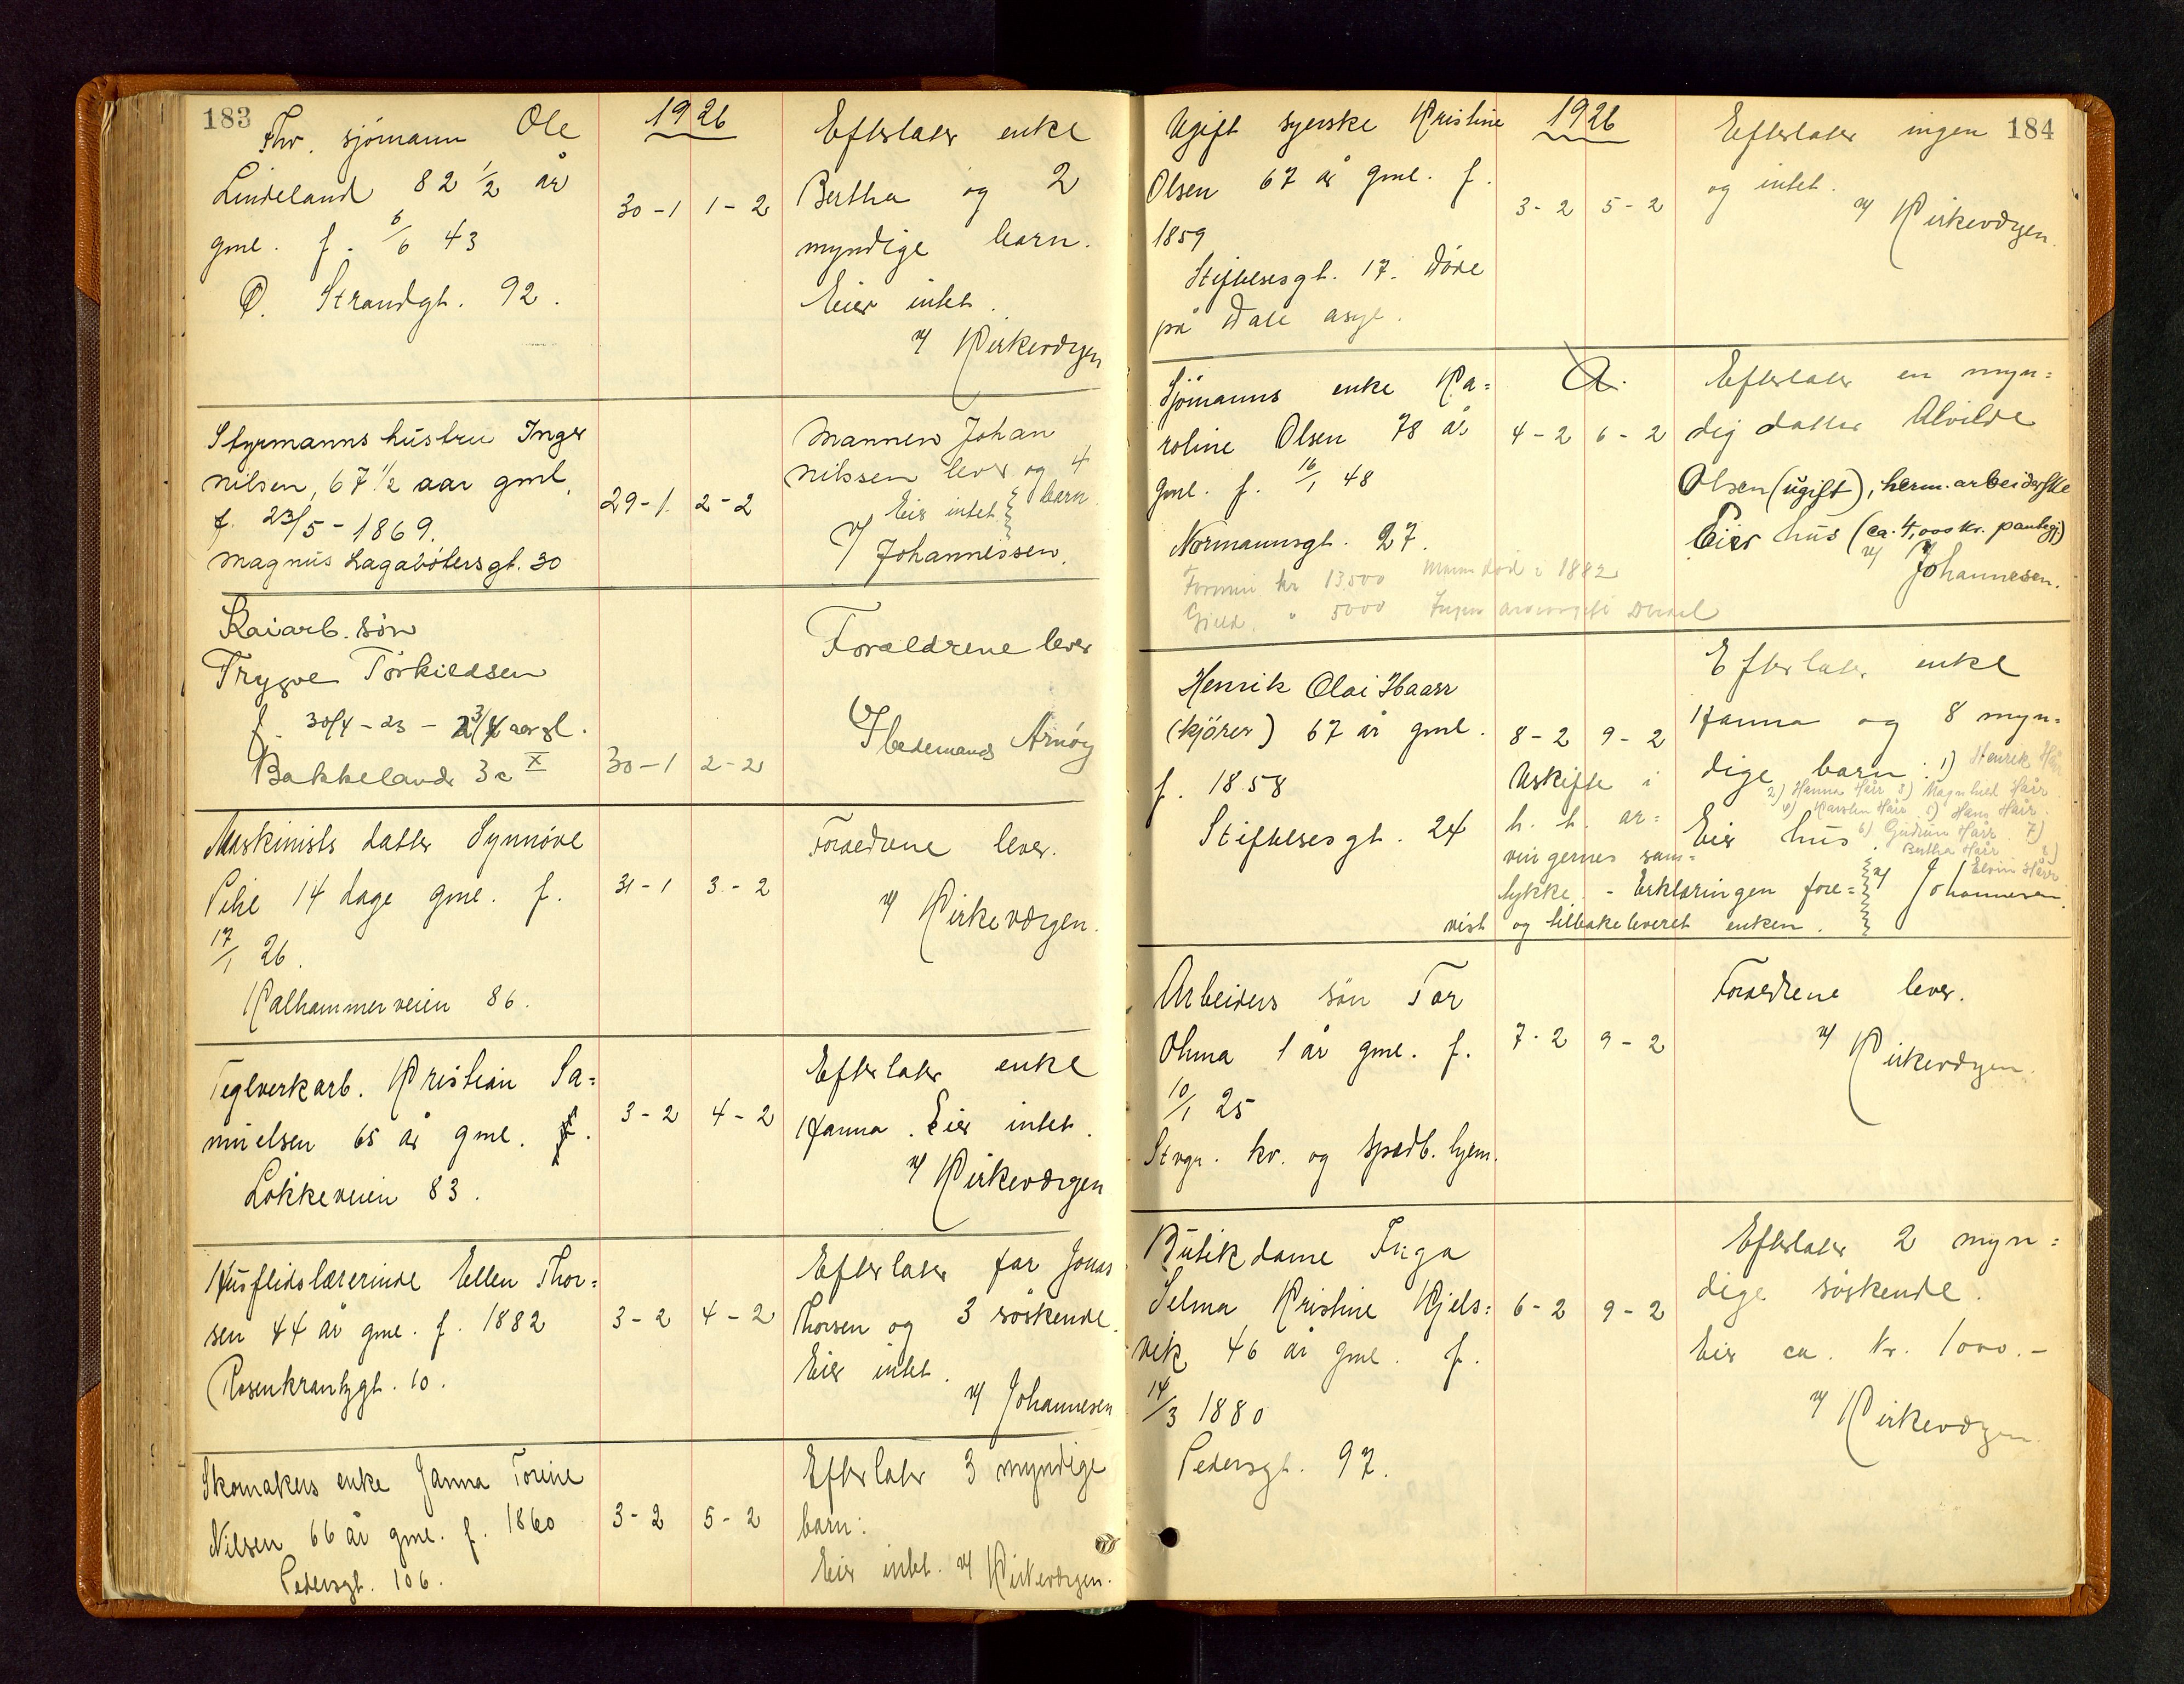 183
1926
Fhv. sjømann Ole
Lindeland 82 1/2 år
gml. f. 6/6 43
Ø. Strandgt. 92.
30-1 1-2
Efterlater enke
Bertha og 2
myndige barn.
Eier intet.
v/ Kirkevergen
Styrmanns hustru Inger
Nilsen, 67 1/2 aar gml.
f. 23/5-1869.
Magnus Lagabøtersgt. 30
29-1. 2-2
Mannen Johan
Nilssen lever og 4
barn
Eier intet
v/ Johannessen.
Kaiarb. søn
Trygve Torkildsen
f. 30/4-23 - 2 3/4 aar gl.
Bakkelandr 3c X
30-1 2-2
Forældrene lever
v/ bedemand Arnøy
Maskinists datter Synnøve
Pihl 14 dage gml. f.
17/1 26.
Kalhammerveien 86.
31-1 3-2
Forældrene lever.
v/ Kirkeværgen.
Teglverkarb. Kristian Sa=
muelsen 65 år gml. f.
Løkkeveien 83.
3-2 4-2
Efterlater enke
Hanna. Eier intet.
v/ Kirkeværgen
Husflidslærerinde Ellen Thor=
sen 44 år gml. f. 1882
Rosenkrantzgt. 10.
3-2 4-2
Efterlater far Jonas
Thorsen og 3 søskende.
Eier intet.
v/ Johannesen
Skomakers enke Janna Torine
Nilsen 66 år gml. f. 1860
Pedersgt. 106.
3-2 5-2
Efterlater 3 myndige
barn:
Eier intet. v/ Kirkeværgen.
184
1926
Ugift syerske Kristine
Olsen 67 år gml. f.
1859
Stiftelsesgt. 17. Døde
på Dale asyl.
3-2 5-2
Efterlater ingen
og intet.
v/ Kirkeværgen.
Sjømanns enke Ka=
roline Olsen 78 år
gml. f. 16/1 48
Normannsgt. 27.
Formue kr 13500 Mann død i 1882
Gjeld " 5000 Ingen arveavgift
A.
4-2 6-2
Efterlater en myn=
dig datter Alvilde
Olsen (ugift), herm. arbeiderske
Eier hus (ca. 4,000 kr. pantegj)
v/ Johannesen.
Henrik Olai Haarr
(kjører) 67 år gml.
f. 1858
Stiftelsesgt. 24
8-2 9-2
Uskifte i
h. t. ar=
vingernes sam=
tykke. - Erklæringen fore=
vist og tilbakeleveret enken.
Efterlater enke
Hanna og 8 myn=
dige barn: 1) Henrik Hår
2) Hanna Hår 3) Magnhild Hår
4) Karsten Hår 5) Hans Hår.
Eier hus. 6) Gudrun Hår 7)
Bertha Hår 8)
Elvin Hår
v/ Johannesen.
Arbeiders søn Tor
Ohma 1 år gml. f.
10/1 25
Stvgr. kv. og spædb. hjem.
7-2 9-2
Forældrene lever.
v/ Kirkeværgen.
Butikdame Inga
Selma Kristine Kjels=
vik 46 år gml. f.
14/3 1880
Pedersgt. 97.
6-2 9-2
Efterlater 2 myn=
dige søskende.
Eier ca. kr. 1000.-
v/ Kirkeværgen